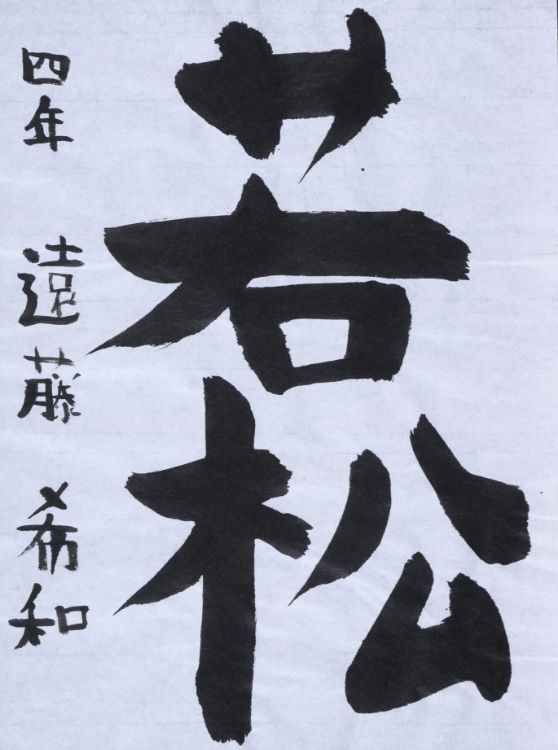 若松
四年 遠藤 希和